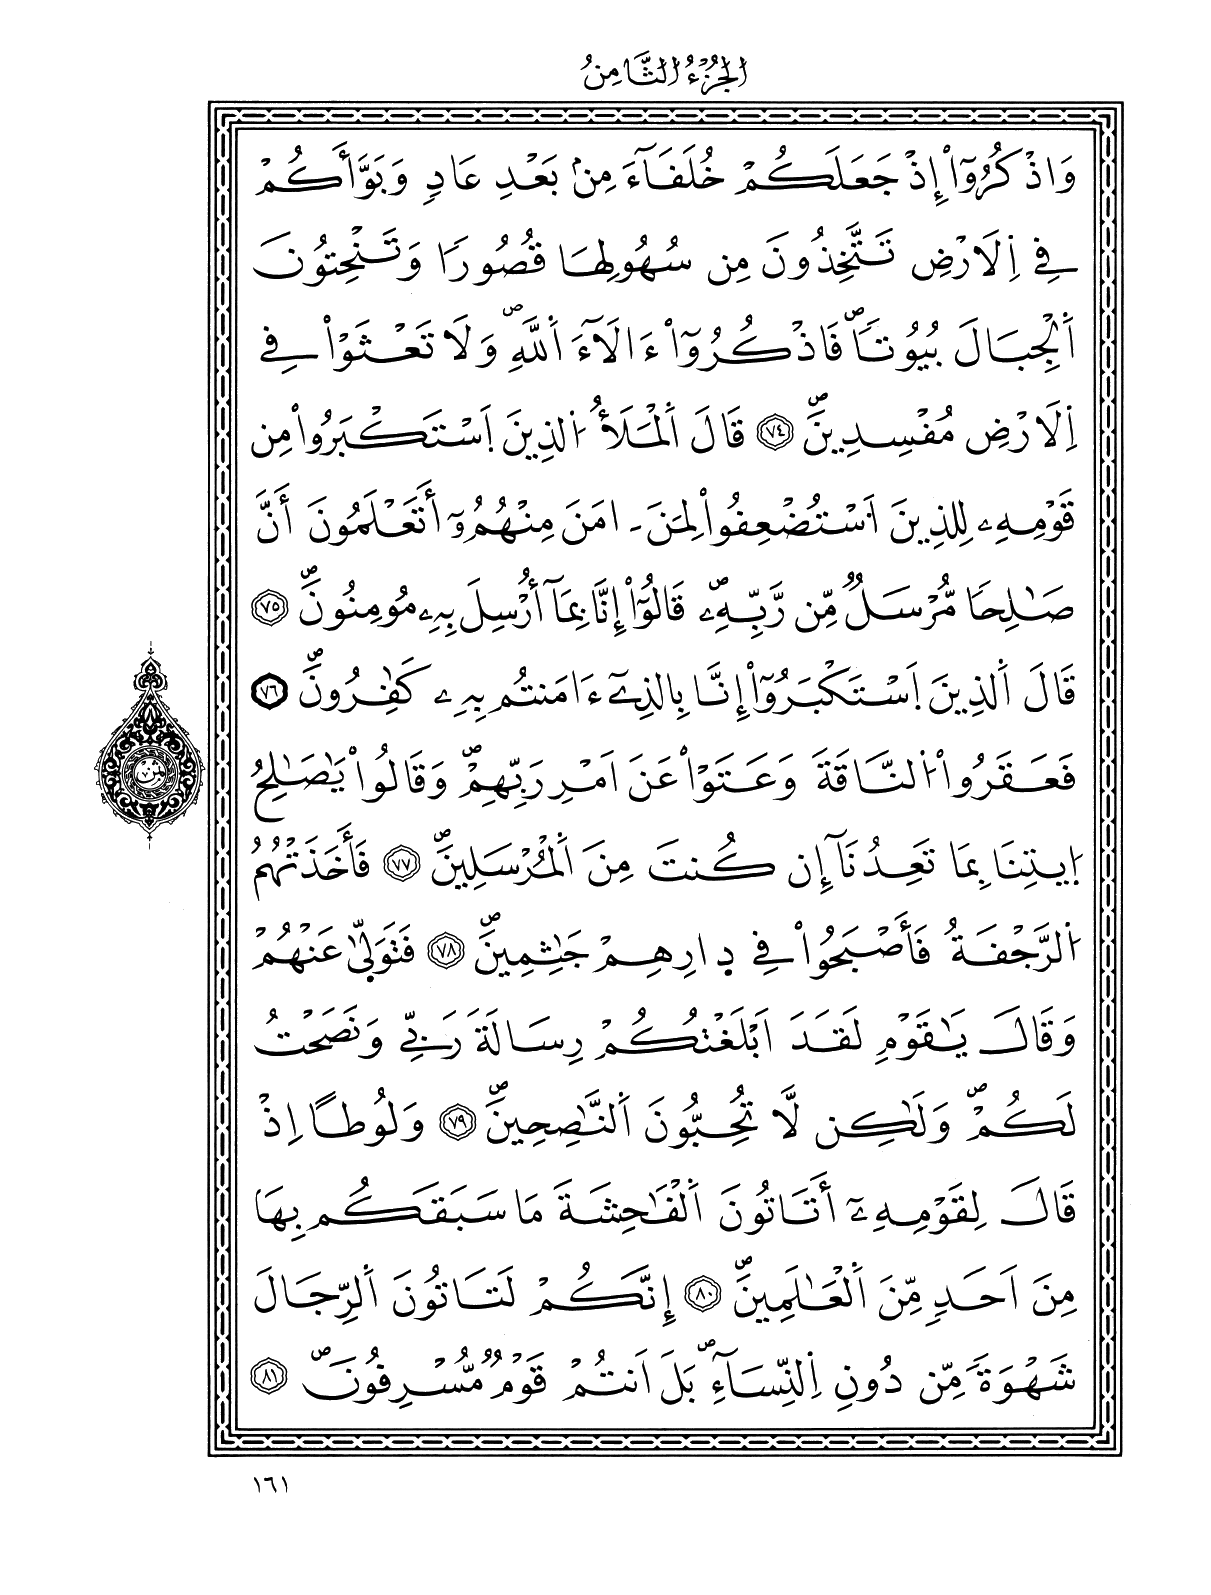 الجُزْءُ الثَّامِنُ
وَاذْكُرُوٓاْ إِذْ جَعَلَكُمْ خُلَفَآءَ مِنۢ بَعْدِ عَادٖ وَبَوَّأَكُمْ
فِے اِ۬لَارْضِ تَتَّخِذُونَ مِن سُهُولِهَا قُصُوراٗ وَتَنْحِتُونَ
اَ۬لْجِبَالَ بُيُوتاٗۖ فَاذْكُرُوٓاْ ءَالَآءَ اَ۬للَّهِۖ وَلَا تَعْثَوْاْ فِے
اِ۬لَارْضِ مُفْسِدِينَۖ ٧٤ قَالَ اَ۬لْمَلَأُ اُ۬لذِينَ اَ۪سْتَكْبَرُواْ مِن
قَوْمِهِۦ لِلذِينَ اَ۟سْتُضْعِفُواْ لِمَنَ ـ اٰمَنَ مِنْهُمُۥٓ أَتَعْلَمُونَ أَنَّ
صَٰلِحاٗ مُّرْسَلٞ مِّن رَّبِّهِۦۖ قَالُوٓاْ إِنَّا بِمَآ أُرْسِلَ بِهِۦ مُومِنُونَۖ ٧٥
قَالَ اَ۬لذِينَ اَ۪سْتَكْبَرُوٓاْ إِنَّا بِالذِےٓ ءَامَنتُم بِهِۦ كَٰفِرُونَۖ ٧٦
فَعَقَرُواْ اُ۬لنَّاقَةَ وَعَتَوْاْ عَنَ اَمْرِ رَبِّهِمْۖ وَقَالُواْ يَٰصَٰلِحُ
اُ۪يتِنَا بِمَا تَعِدُنَآ إِن كُنتَ مِنَ اَ۬لْمُرْسَلِينَۖ ٧٧ فَأَخَذَتْهُمُ
اُ۬لرَّجْفَةُ فَأَصْبَحُواْ فِے دِارِهِمْ جَٰثِمِينَۖ ٧٨ فَتَوَلَّىٰ عَنْهُمْ
وَقَالَ يَٰقَوْمِ لَقَدَ اَبْلَغْتُكُمْ رِسَالَةَ رَبِّے وَنَصَحْتُ
لَكُمْۖ وَلَٰكِن لَّا تُحِبُّونَ اَ۬لنَّٰصِحِينَۖ ٧٩ وَلُوطاً اِذْ
قَالَ لِقَوْمِهِۦٓ أَتَاتُونَ اَ۬لْفَٰحِشَةَ مَا سَبَقَكُم بِهَا
مِنَ اَحَدٖ مِّنَ اَ۬لْعَٰلَمِينَۖ ٨٠ إِنَّكُمْ لَتَاتُونَ اَ۬لرِّجَالَ
شَهْوَةٗ مِّن دُونِ اِ۬لنِّسَآءِۖ بَلَ اَنتُمْ قَوْمٞ مُّسْرِفُونَۖ ٨١
١٦١